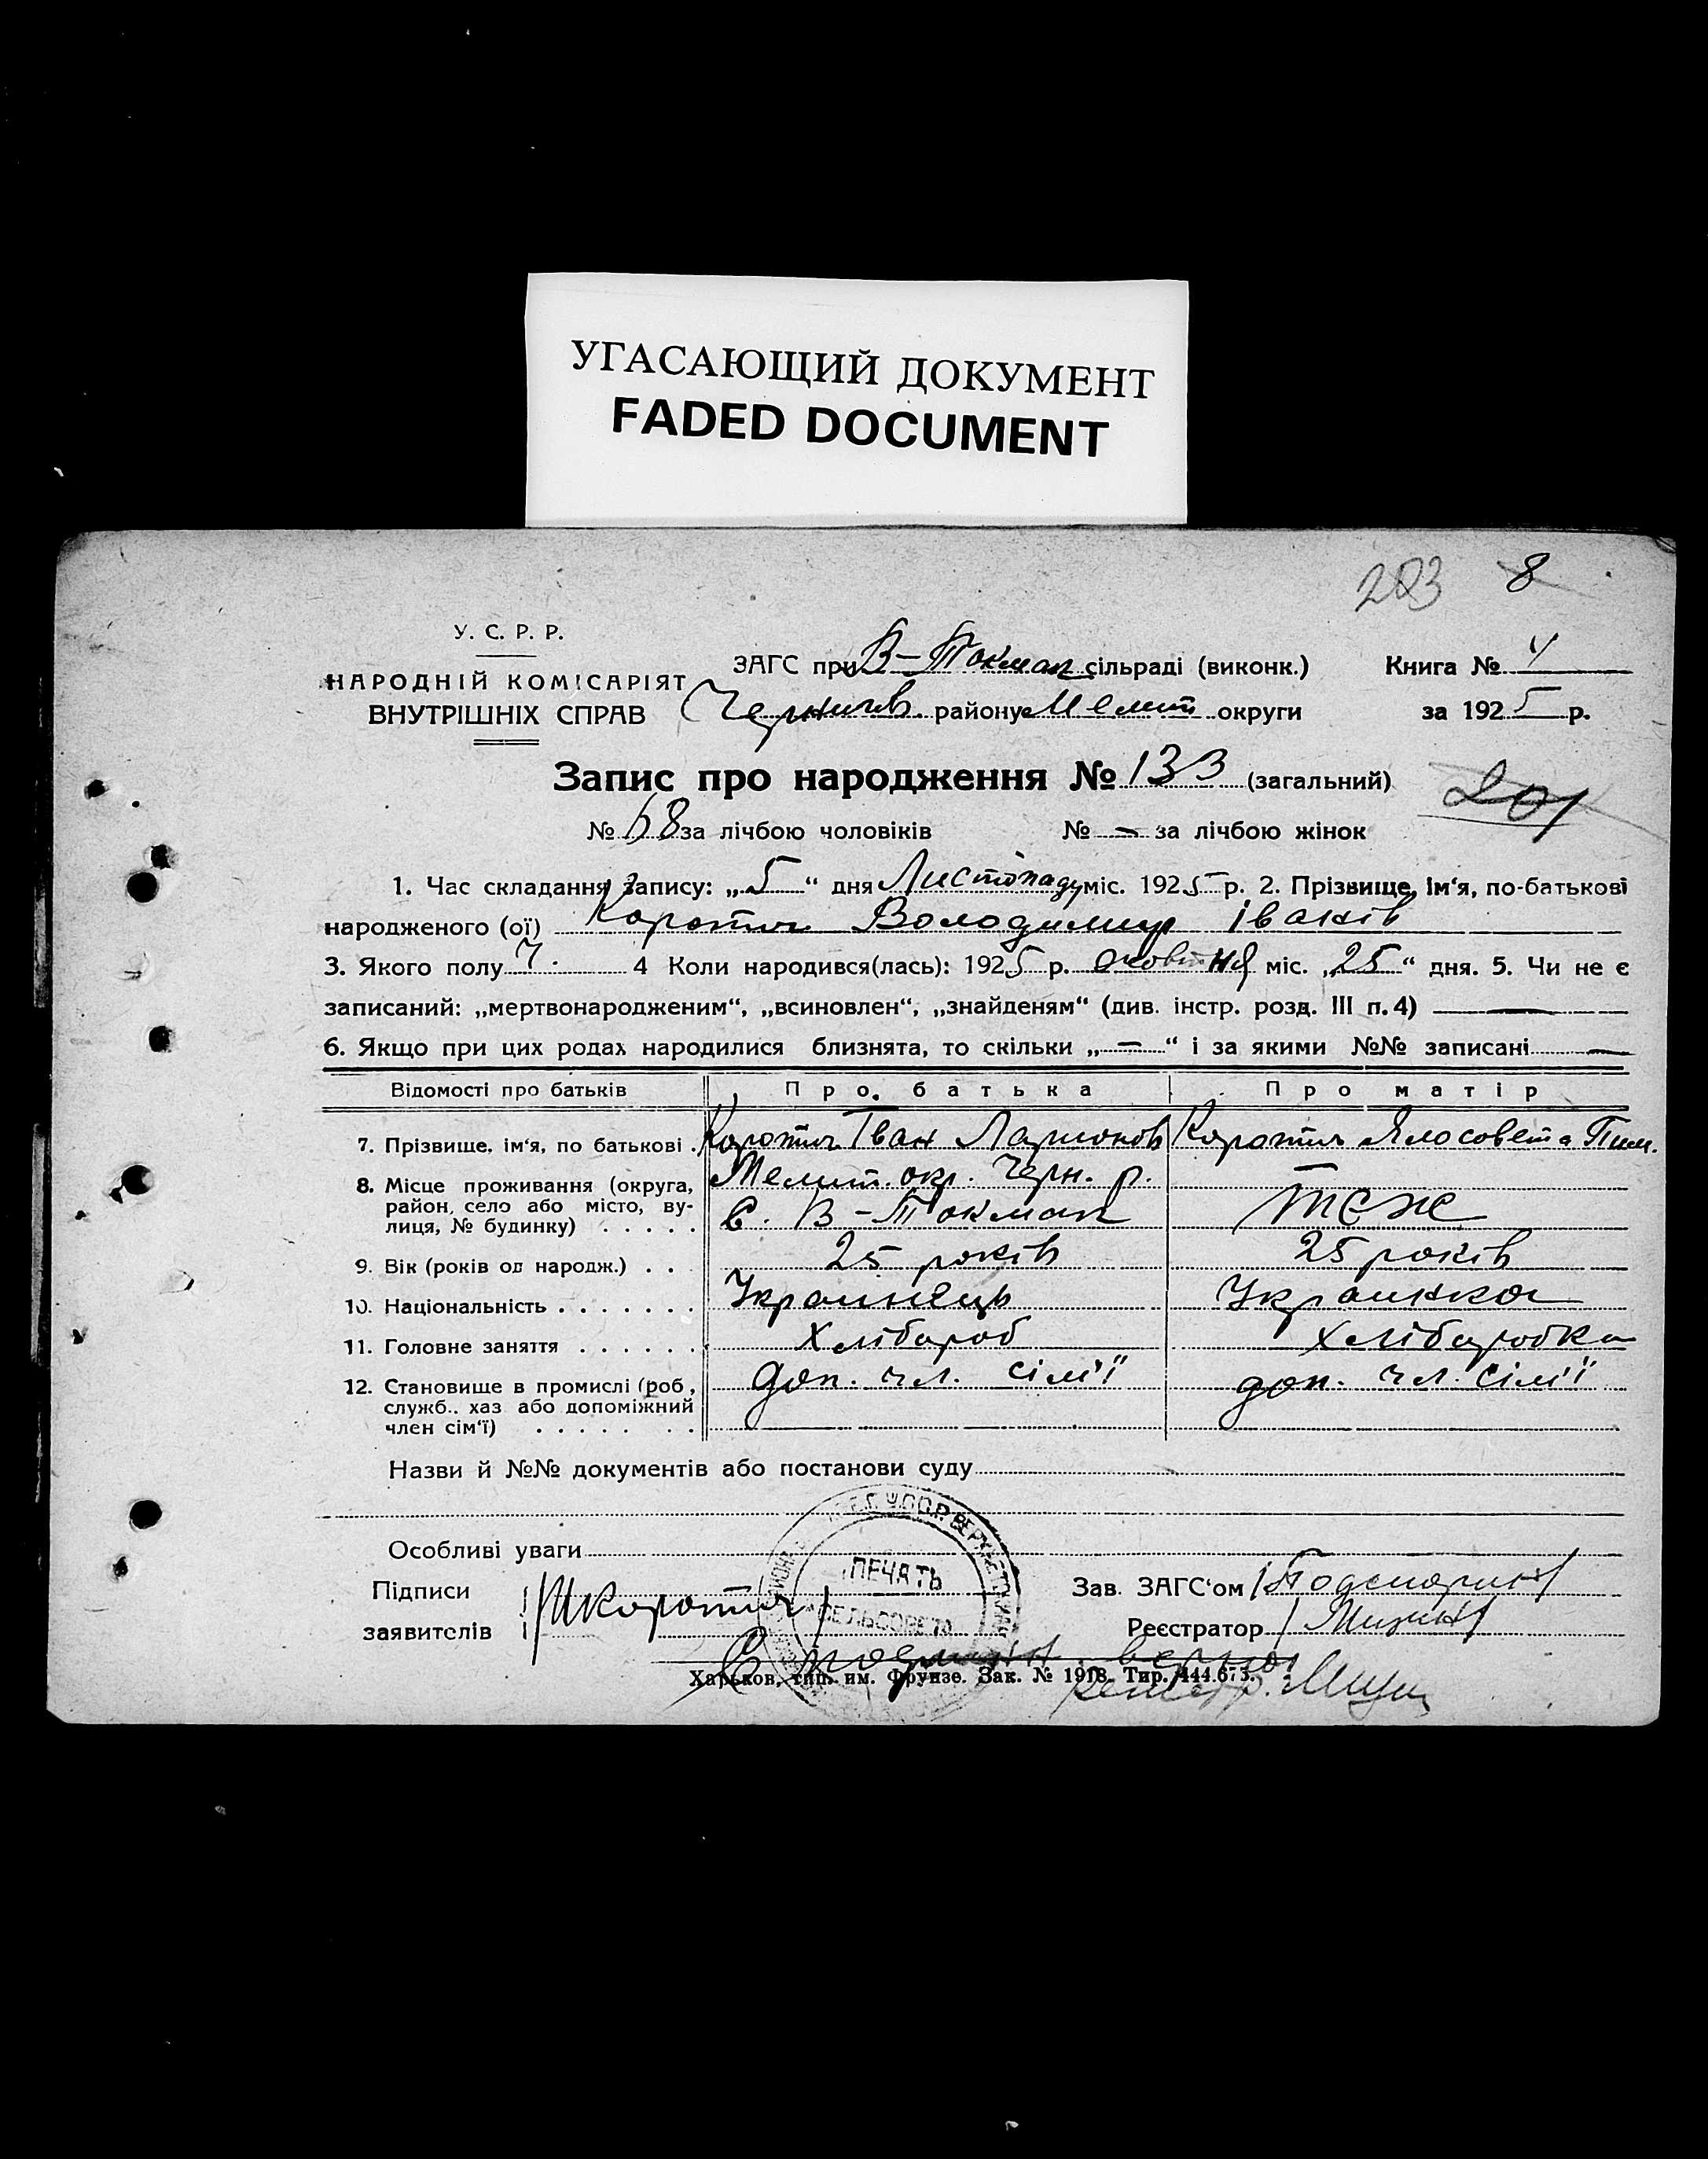 УГАСАЮЩИЙ ДОКУМЕНТ
FADED DOCUMENT
203 8
У. С. Р. Р.
НАРОДНІЙ КОМІСАРІЯТ
ВНУТРІШНІХ СПРАВ
ЗАГС при В-Токмак сільраді (виконк.)
Книга № 4
Черниг. району Мелит округи
за 1925 р.
Запис про народження № 133 (загальний)
201
№ 68 за лічбою чоловіків № — за лічбою жінок
1. Час складання запису: „5“ дня Листопаду міс. 1925 р. 2. Прізвище, ім'я, по-батькові
народженого (ої) Коротич Володимир Іванів
3. Якого полу Ч. 4 Коли народився(лась): 1925 р. жовтня міс. „25“ дня. 5. Чи не є
записаний: „мертвонародженим“, „всиновлен“, „знайденям“ (див. інстр. розд. III п. 4) —
6. Якщо при цих родах народилися близнята, то скільки „—“ і за якими №№ записані —
Відомості про батьків Про батька Про матір
7. Прізвище, ім'я, по батькові . Коротич Іван Ларионов Коротич Ялосовета Пим.
8. Місце проживання (округа, район, село або місто, вулиця, № будинку) . . . . . Мелит. окр. Черн. р.
С. В-Токмак теж
9. Вік (років од народж.) . . . 25 років 25 років
10. Національність . . . . . . . Украинець Украинка
11. Головне заняття . . . . . . Хлібароб Хлібаробка
12. Становище в промислі (роб., служб., хаз або допоміжний член сім'ї) . . . . . . . доп. чл. сімї доп. чл. сімї
Назви й №№ документів або постанови суду
Особливі уваги
Підписи
заявителів
Коротич
ПЕЧАТЬ
СЕЛЬСОВЕТА
Зав. ЗАГС'ом
Реєстратор
С подлин верно:
Харьков, тип. им. Фрунзе. Зак. № 1918. Тир. 444.673.